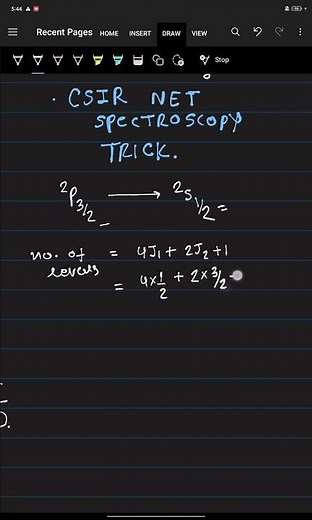 5:44
Recent Pages HOME INSERT DRAW VIEW
Stop
· CSIR NET
SPECTROSCOPY
TRICK.
²P₃/₂ ⟶ ²S₁/₂ =
no. of levels = 4J₁ + 2J₂ + 1
= 4 × 1/2 + 2 × 3/2